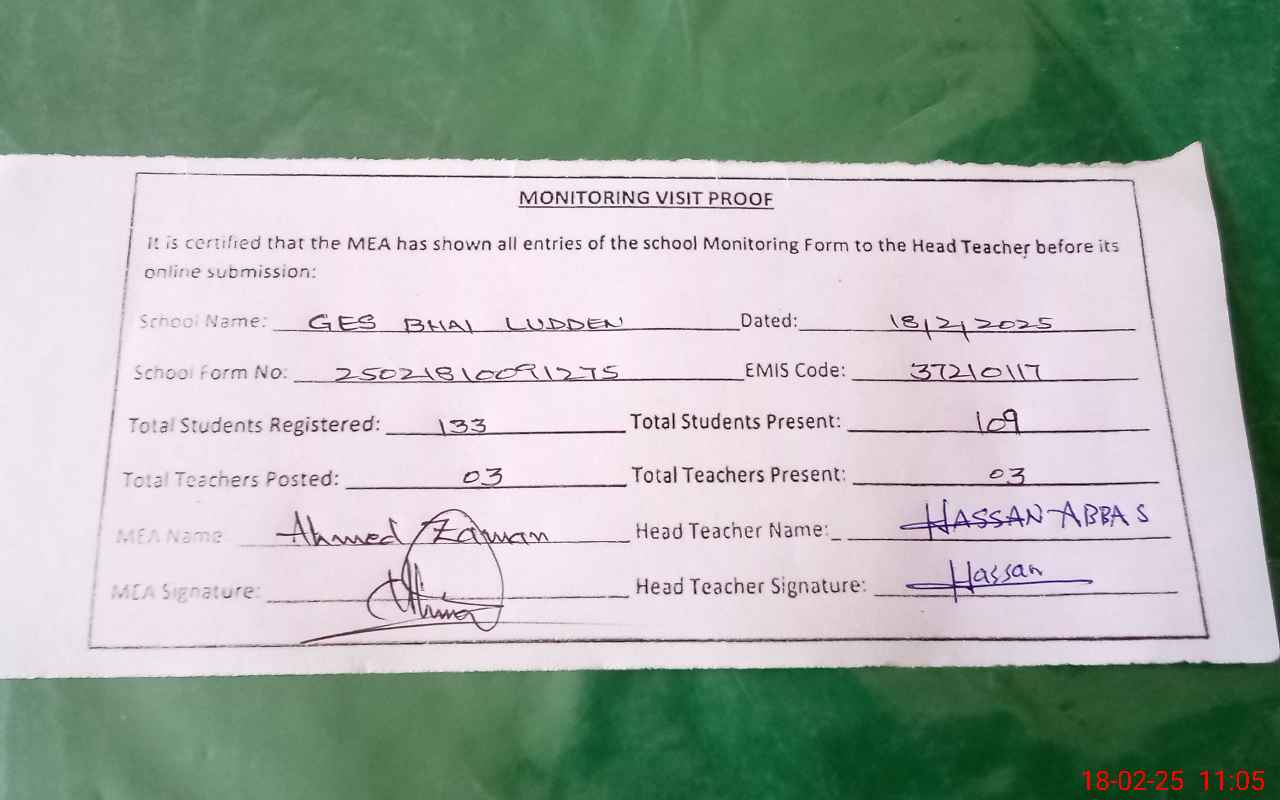 MONITORING VISIT PROOF
It is certified that the MEA has shown all entries of the school Monitoring Form to the Head Teacher before its
online submission:
School Name: GES BHAI LUDDEN Dated: 18/2/2025
School Form No: 25021810091275 EMIS Code: 37210117
Total Students Registered: 133 Total Students Present: 109
Total Teachers Posted: 03 Total Teachers Present: 03
MEA Name Ahmed Zaman Head Teacher Name: HASSAN ABBAS
MEA Signature: Head Teacher Signature: Hassan
18-02-25 11:05